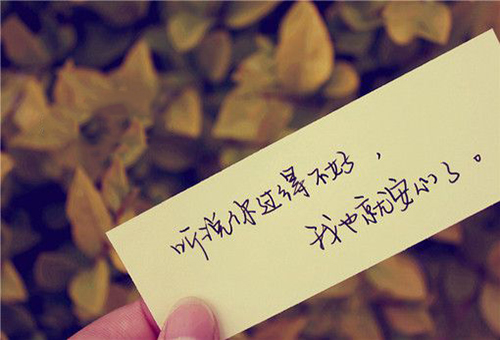 听说你过得不好，
我也就安心了。